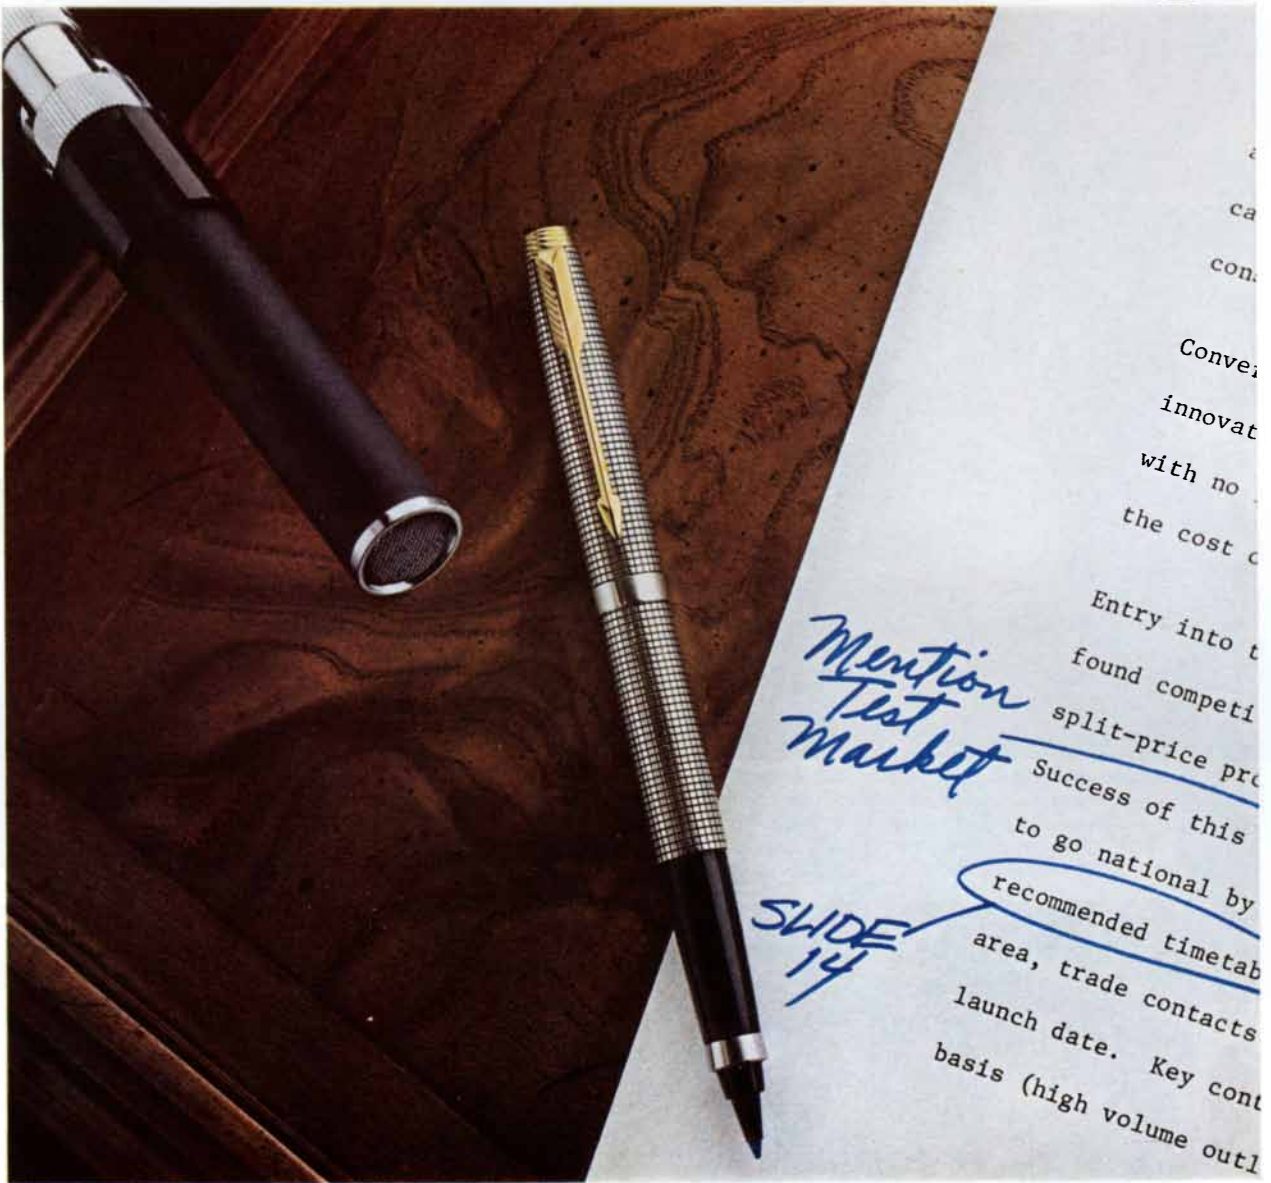 ca
con
Conver
innovat
with no
the cost
Entry into t
found competi
split-price pro
Success of this
to go national by
recommended timetab
area, trade contacts
launch date. Key cont
basis (high volume outl
Mention
Test
Market
SLIDE
14